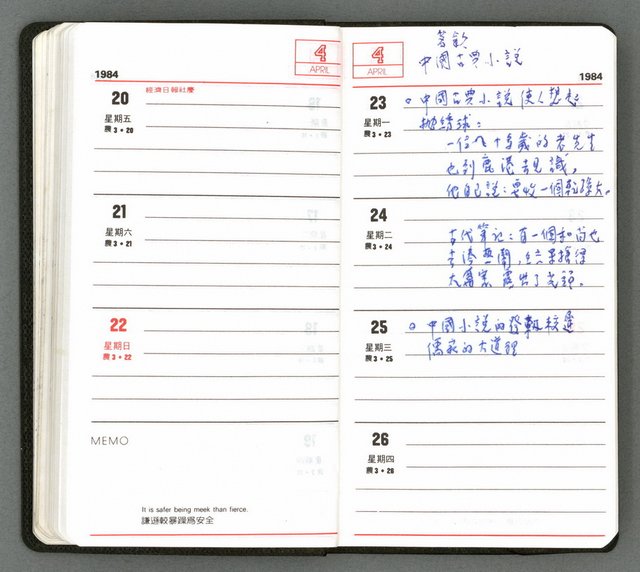 4
APRIL
1984
20
經濟日報社慶
星期五
農3·20
21
星期六
農3·21
22
星期日
農3·22
MEMO
It is safer being meek than fierce.
謙遜較暴躁為安全
4
APRIL
1984
中國古典小說
23
星期一
農3·23
中國古典小說使人想起
拋繡球:
一位八十多歲的老先生
也到鹿港去見識,
他自己說:要收一個乾孫女。
24
星期二
農3·24
古代筆記:有一個和尚也
去湊熱鬧,結果搶得
大家 了光頭。
25
星期三
農3·25
中國小說的發軔較遲
儒家的大道理
26
星期四
農3·26